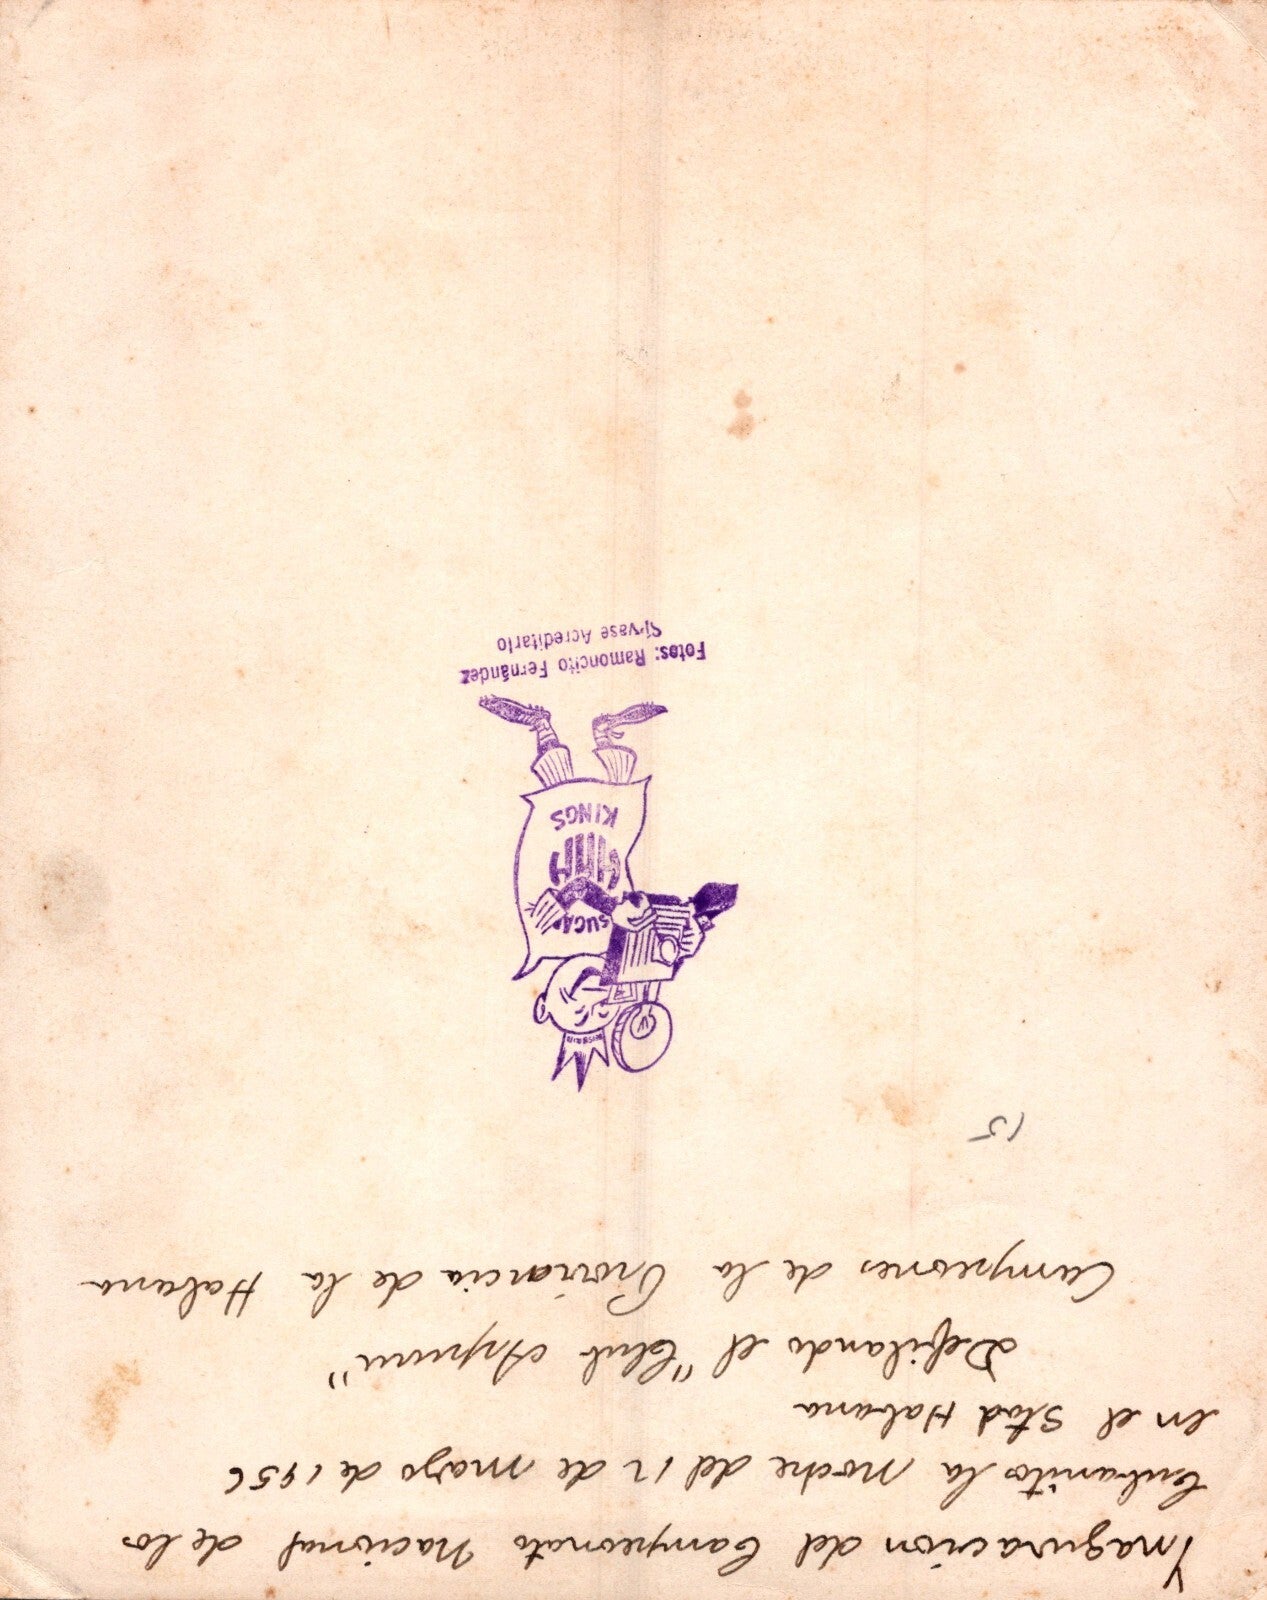 Ynaguracion del Campeonato Nacional de los
Cubanitos la noche del 12 de mayo de 1956
en el Stad Habana
Defilando el "Club
Campeones de la Provincia de la Habana
15
SUGAR
KINGS
Fotos: Ramoncito Fernández
Sírvase Acreditarlo